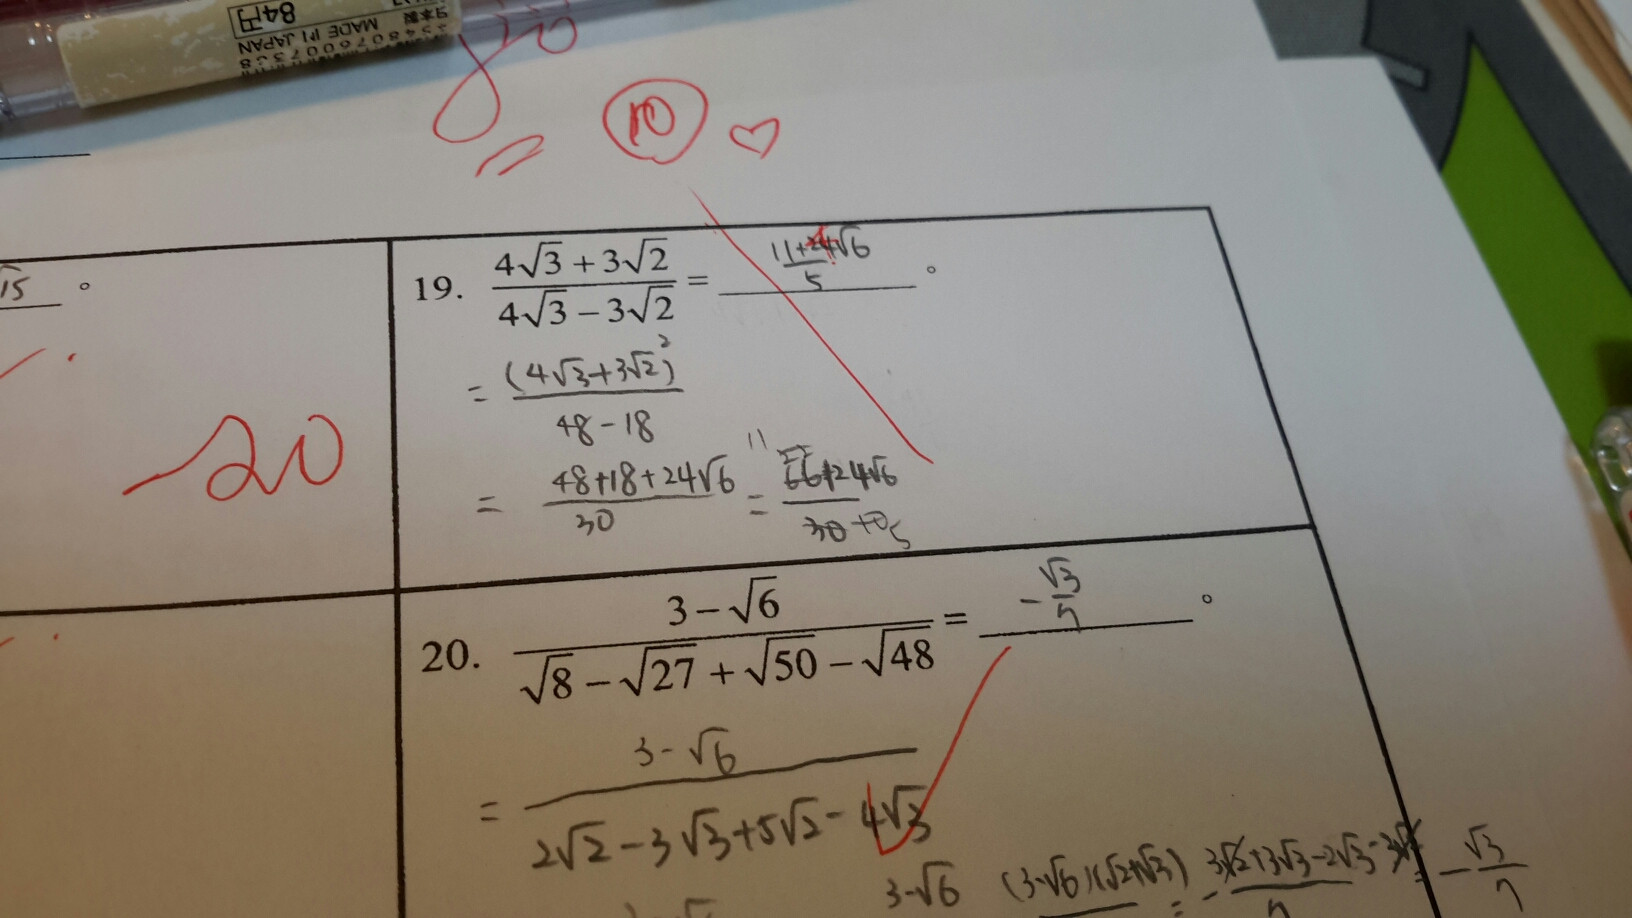 84円
日本製
MADE IN JAPAN
10 ♡
√15 。
-20
19. (4√3 + 3√2)/(4√3 − 3√2) = (11+4√6)/5 。
= (4√3+3√2)²/(48-18)
= (48+18+24√6)/30 = (66+24√6)/30
11 5
20. (3−√6)/(√8 − √27 + √50 − √48) = -√3/7 。
= (3-√6)/(2√2-3√3+5√2-4√3)
3-√6 (3-√6)(√2+√3) = - (3√2+3√3-2√3-3√2)/7 = -√3/7